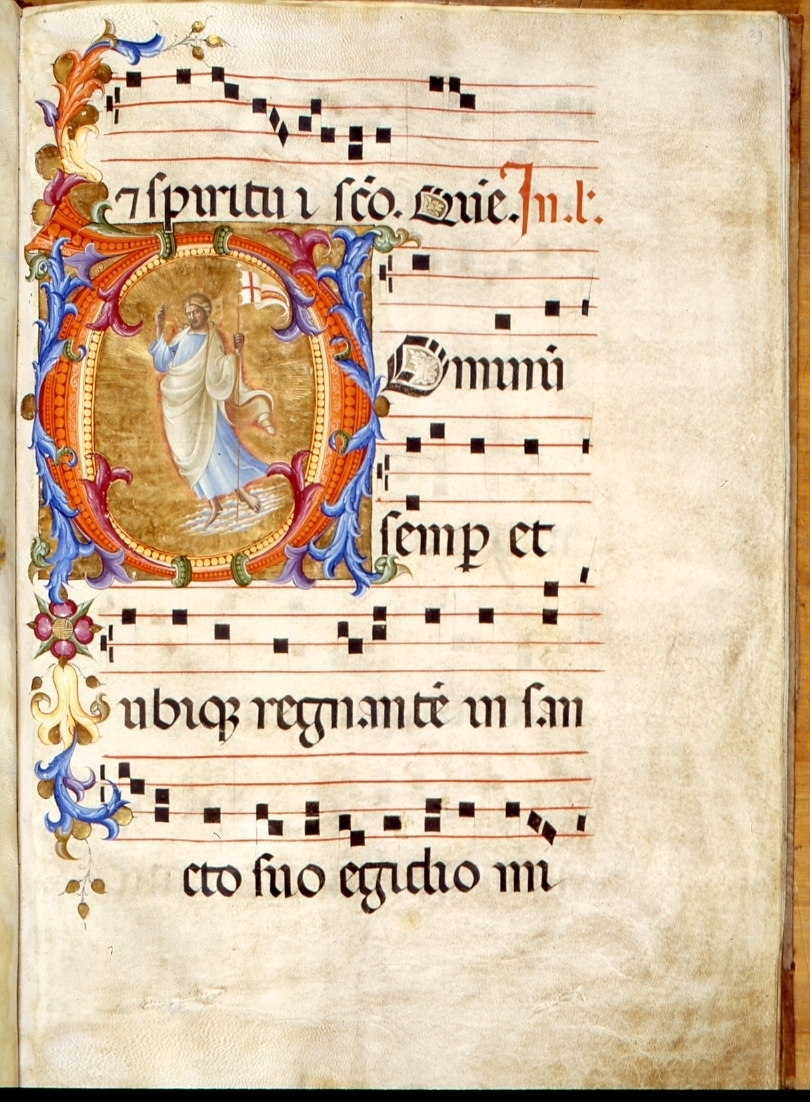 ⁊ spiritu i sc̄o. Que. In. l:.
Dominū
semꝑ et
ubiqꝫ regnantē in san
cto suo egidio mi